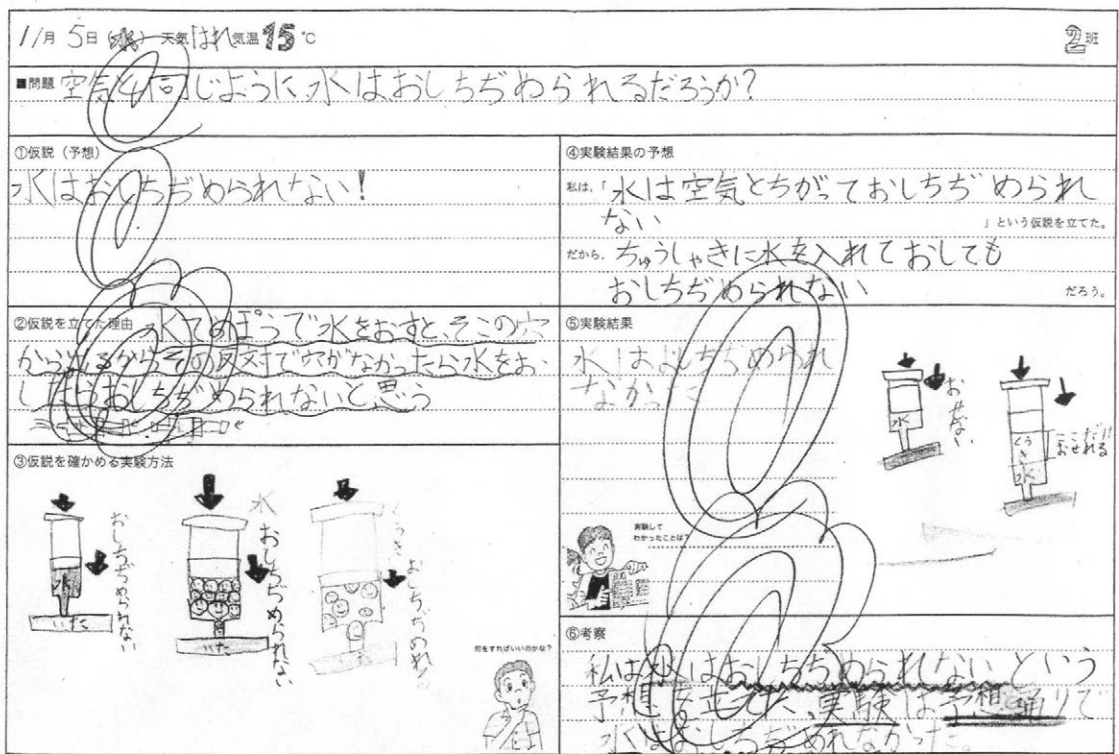 11月5日(水) 天気はれ気温15℃
2班
■問題 空気と同じように水はおしちぢめられるだろうか?
①仮説(予想)
水はおしちぢめられない!
②仮説を立てた理由 水でっぽうで水をおすと、そこの穴
から出るからその反対で穴がなかったら水をお
したらおしちぢめられないと思う
③仮説を確かめる実験方法
水
いた
おしちぢめられない
水
おしちぢめられない
いた
くうき
おしちぢめれる
何をすればいいのかな?
④実験結果の予想
私は、「水は空気とちがっておしちぢめられ
ない
」という仮説を立てた。
だから、ちゅうしゃきに水を入れておしても
おしちぢめられない
だろう。
⑤実験結果
水はおしちぢめられ
なかった
水
おせない
くうき
水
ここだけ
おせれる
実験して
わかったことは?
⑥考察
私は水はおしちぢめられないという
予想を立てた、実験は予想通りで
水はおしちぢめれなかった。